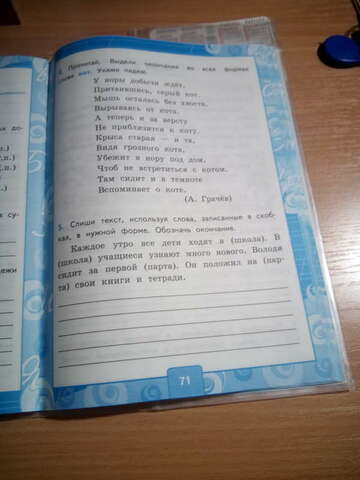 2. Прочитай. Выдели окончания во всех формах
слова кот. Укажи падеж.
У норы добычи ждёт,
Притаившись, серый кот.
Мышь осталась без хвоста,
Вырываясь от кота.
А теперь и за версту
Не приблизится к коту.
Крыса старая — и та,
Видя грозного кота,
Убежит в нору под дом,
Чтоб не встретиться с котом.
Там сидит и в темноте
Вспоминает о коте.
(А. Грачёв)
3. Спиши текст, используя слова, записанные в скоб-
ках, в нужной форме. Обозначь окончание.
Каждое утро все дети ходят в (школа). В
(школа) учащиеся узнают много нового. Володя
сидит за первой (парта). Он положил на (пар-
та) свои книги и тетради.
71
до-
.)
п.)
п.)
п.)
су-